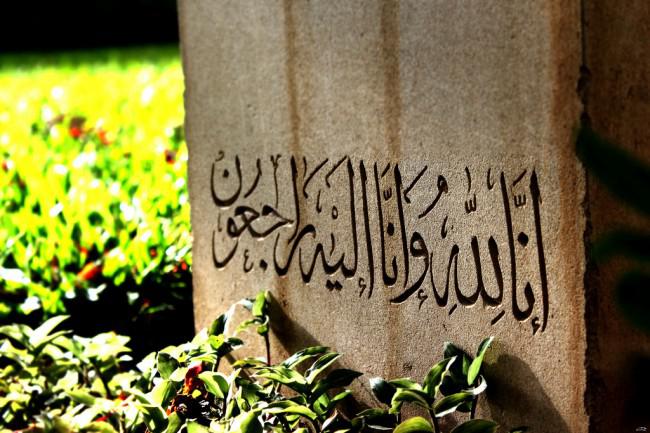 إنّا لِلّٰهِ وُإنّا إليْهِ رَاجعُونْ